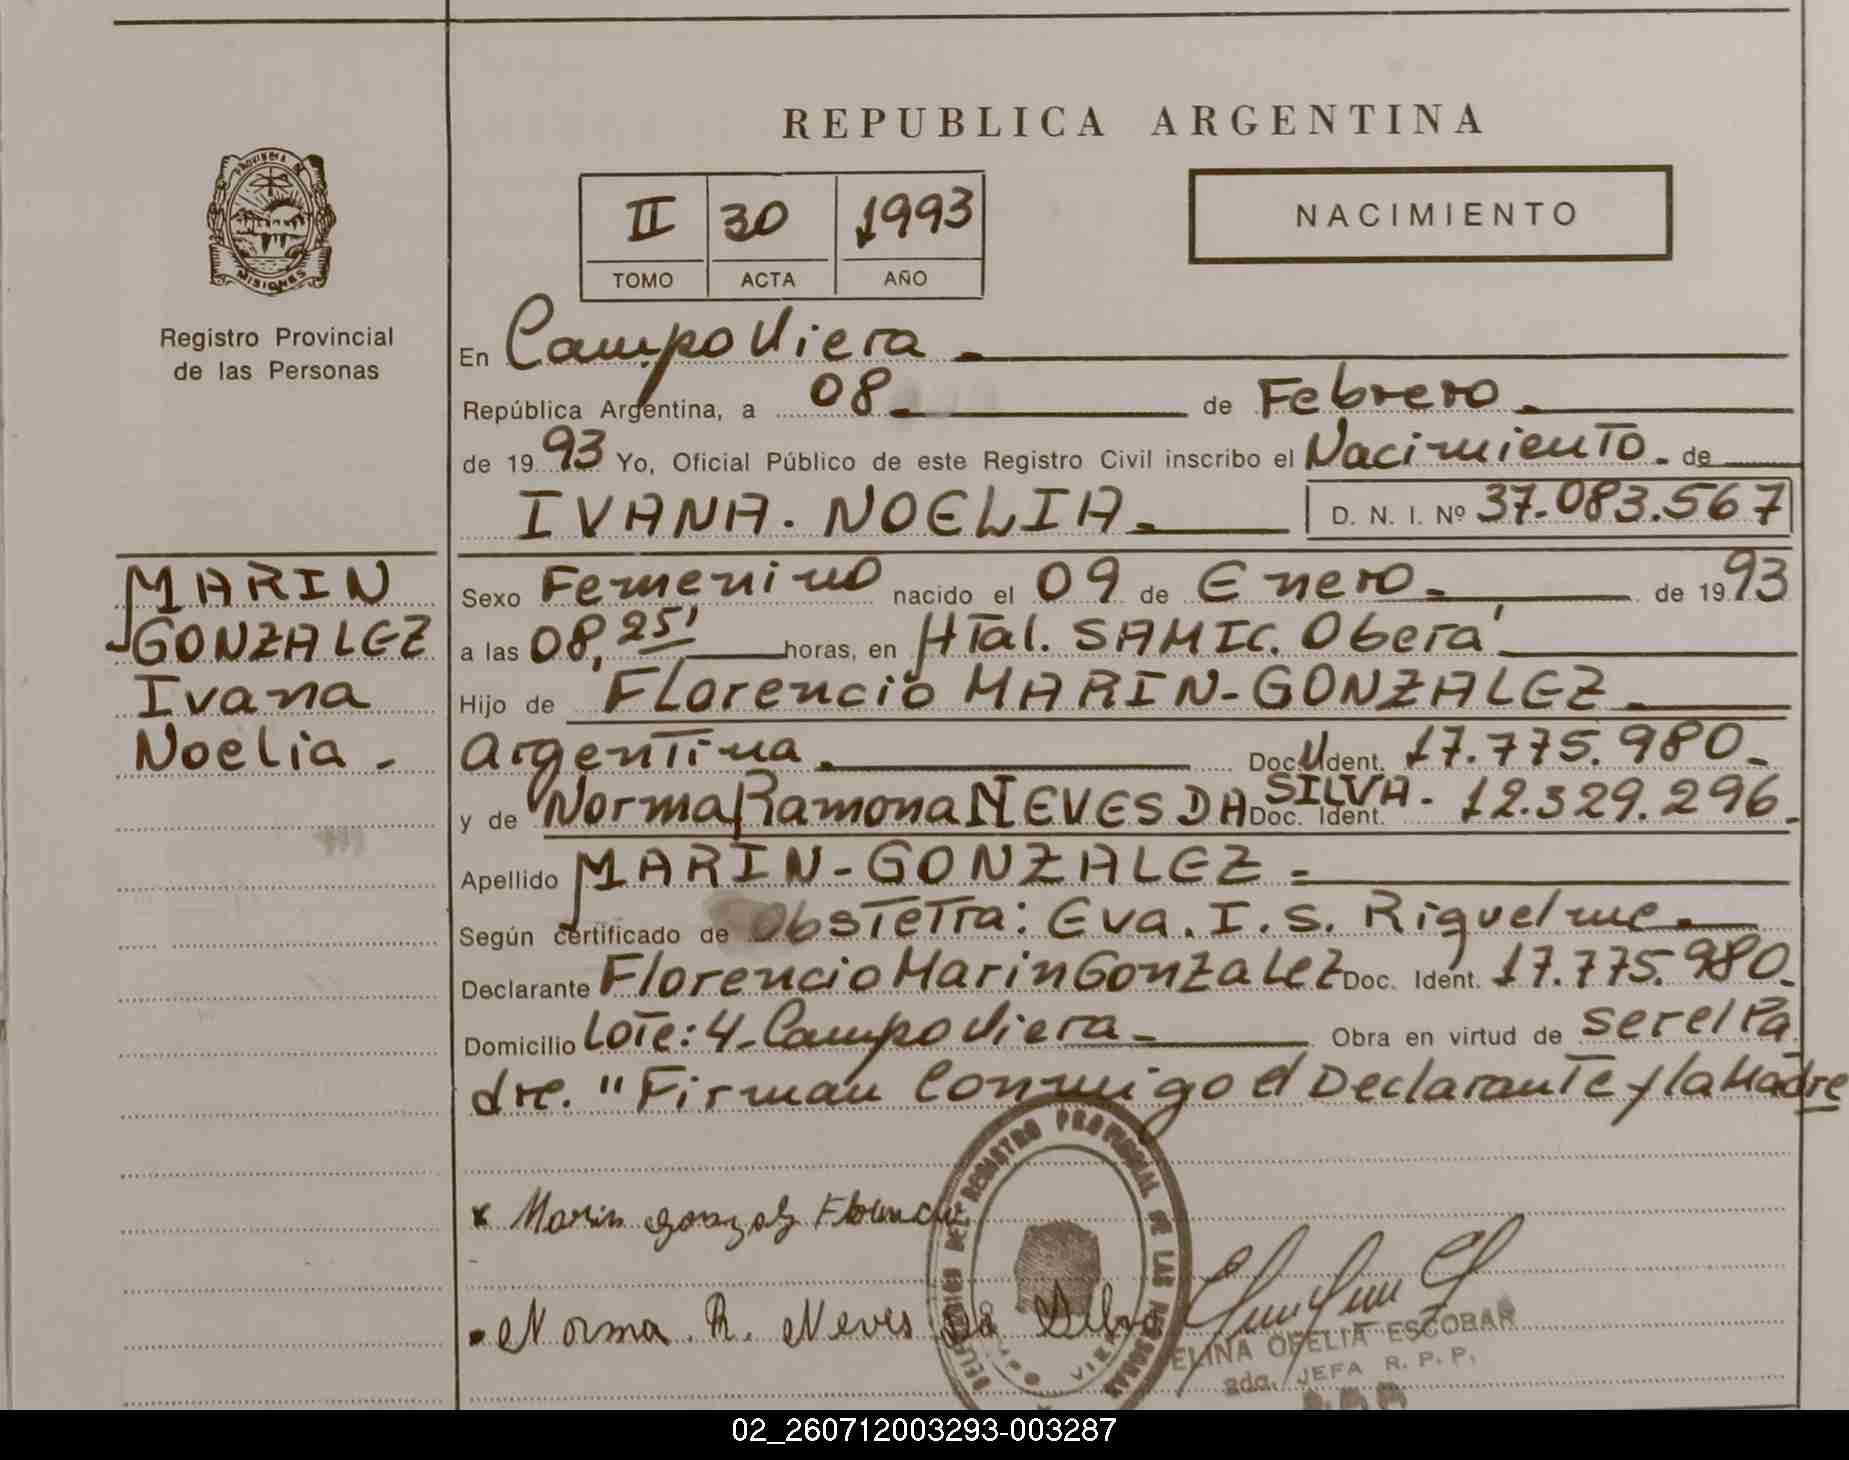 REPUBLICA ARGENTINA
PROVINCIA DE
MISIONES
Registro Provincial
de las Personas
II 30 1993
TOMO ACTA AÑO
NACIMIENTO
En Campo Viera -
República Argentina, a 08 de Febrero -
de 1993 Yo, Oficial Público de este Registro Civil inscribo el Nacimiento - de
IVANA. NOELIA - D. N. I. Nº 37.083.567
MARIN
GONZALEZ
Ivana
Noelia -
Sexo Femenino nacido el 09 de Enero - de 1993
a las 08,25' horas, en HTal. SAMIC. Oberá
Hijo de Florencio MARIN-GONZALEZ -
Argentina. Doc. Ident. 17.775.980 -
y de Norma Ramona NEVES DA SILVA - Doc. Ident. 12.329.296.
Apellido MARIN-GONZALEZ -
Según certificado de Obstetra: Eva. I. S. Riquelme -
Declarante Florencio Marin Gonzalez Doc. Ident. 17.775.980 -
Domicilio Lote: 4 - Campo Viera - Obra en virtud de ser el Pa
dre. " Firman Conmigo el Declarante y la Madre
x Marin Gonzalez Florencio
Norma. R. Neves Da Silva
REGISTRO PROVINCIAL DE LAS PERSONAS
ELINA OFELIA ESCOBAR
2da. JEFA R. P. P.
02_260712003293-003287